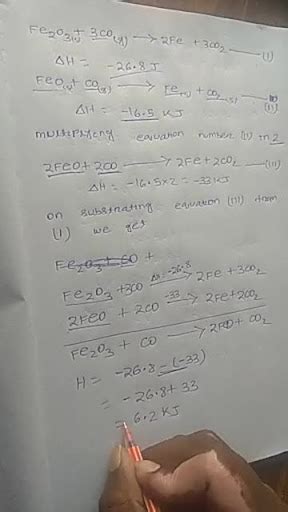 Fe₂O₃(s) + 3CO(g) → 2Fe + 3CO₂ —(I)
ΔH = -26.8 J
FeO(s) + CO(g) → Fe(s) + CO₂(g) —(II)
ΔH = -16.5 KJ
multiplying equation number (II) in 2
2FeO + 2CO → 2Fe + 2CO₂ —(III)
ΔH = -16.5×2 = -33KJ
on substrating equation (III) from
(I) we get
Fe₂O₃ + CO +
Fe₂O₃ + 3CO ΔH=-26.8→ 2Fe + 3CO₂
2FeO + 2CO -33→ 2Fe+2CO₂
Fe₂O₃ + CO → 2FeO + CO₂
H = -26.8 - (-33)
= -26.8 + 33
= 6.2 KJ